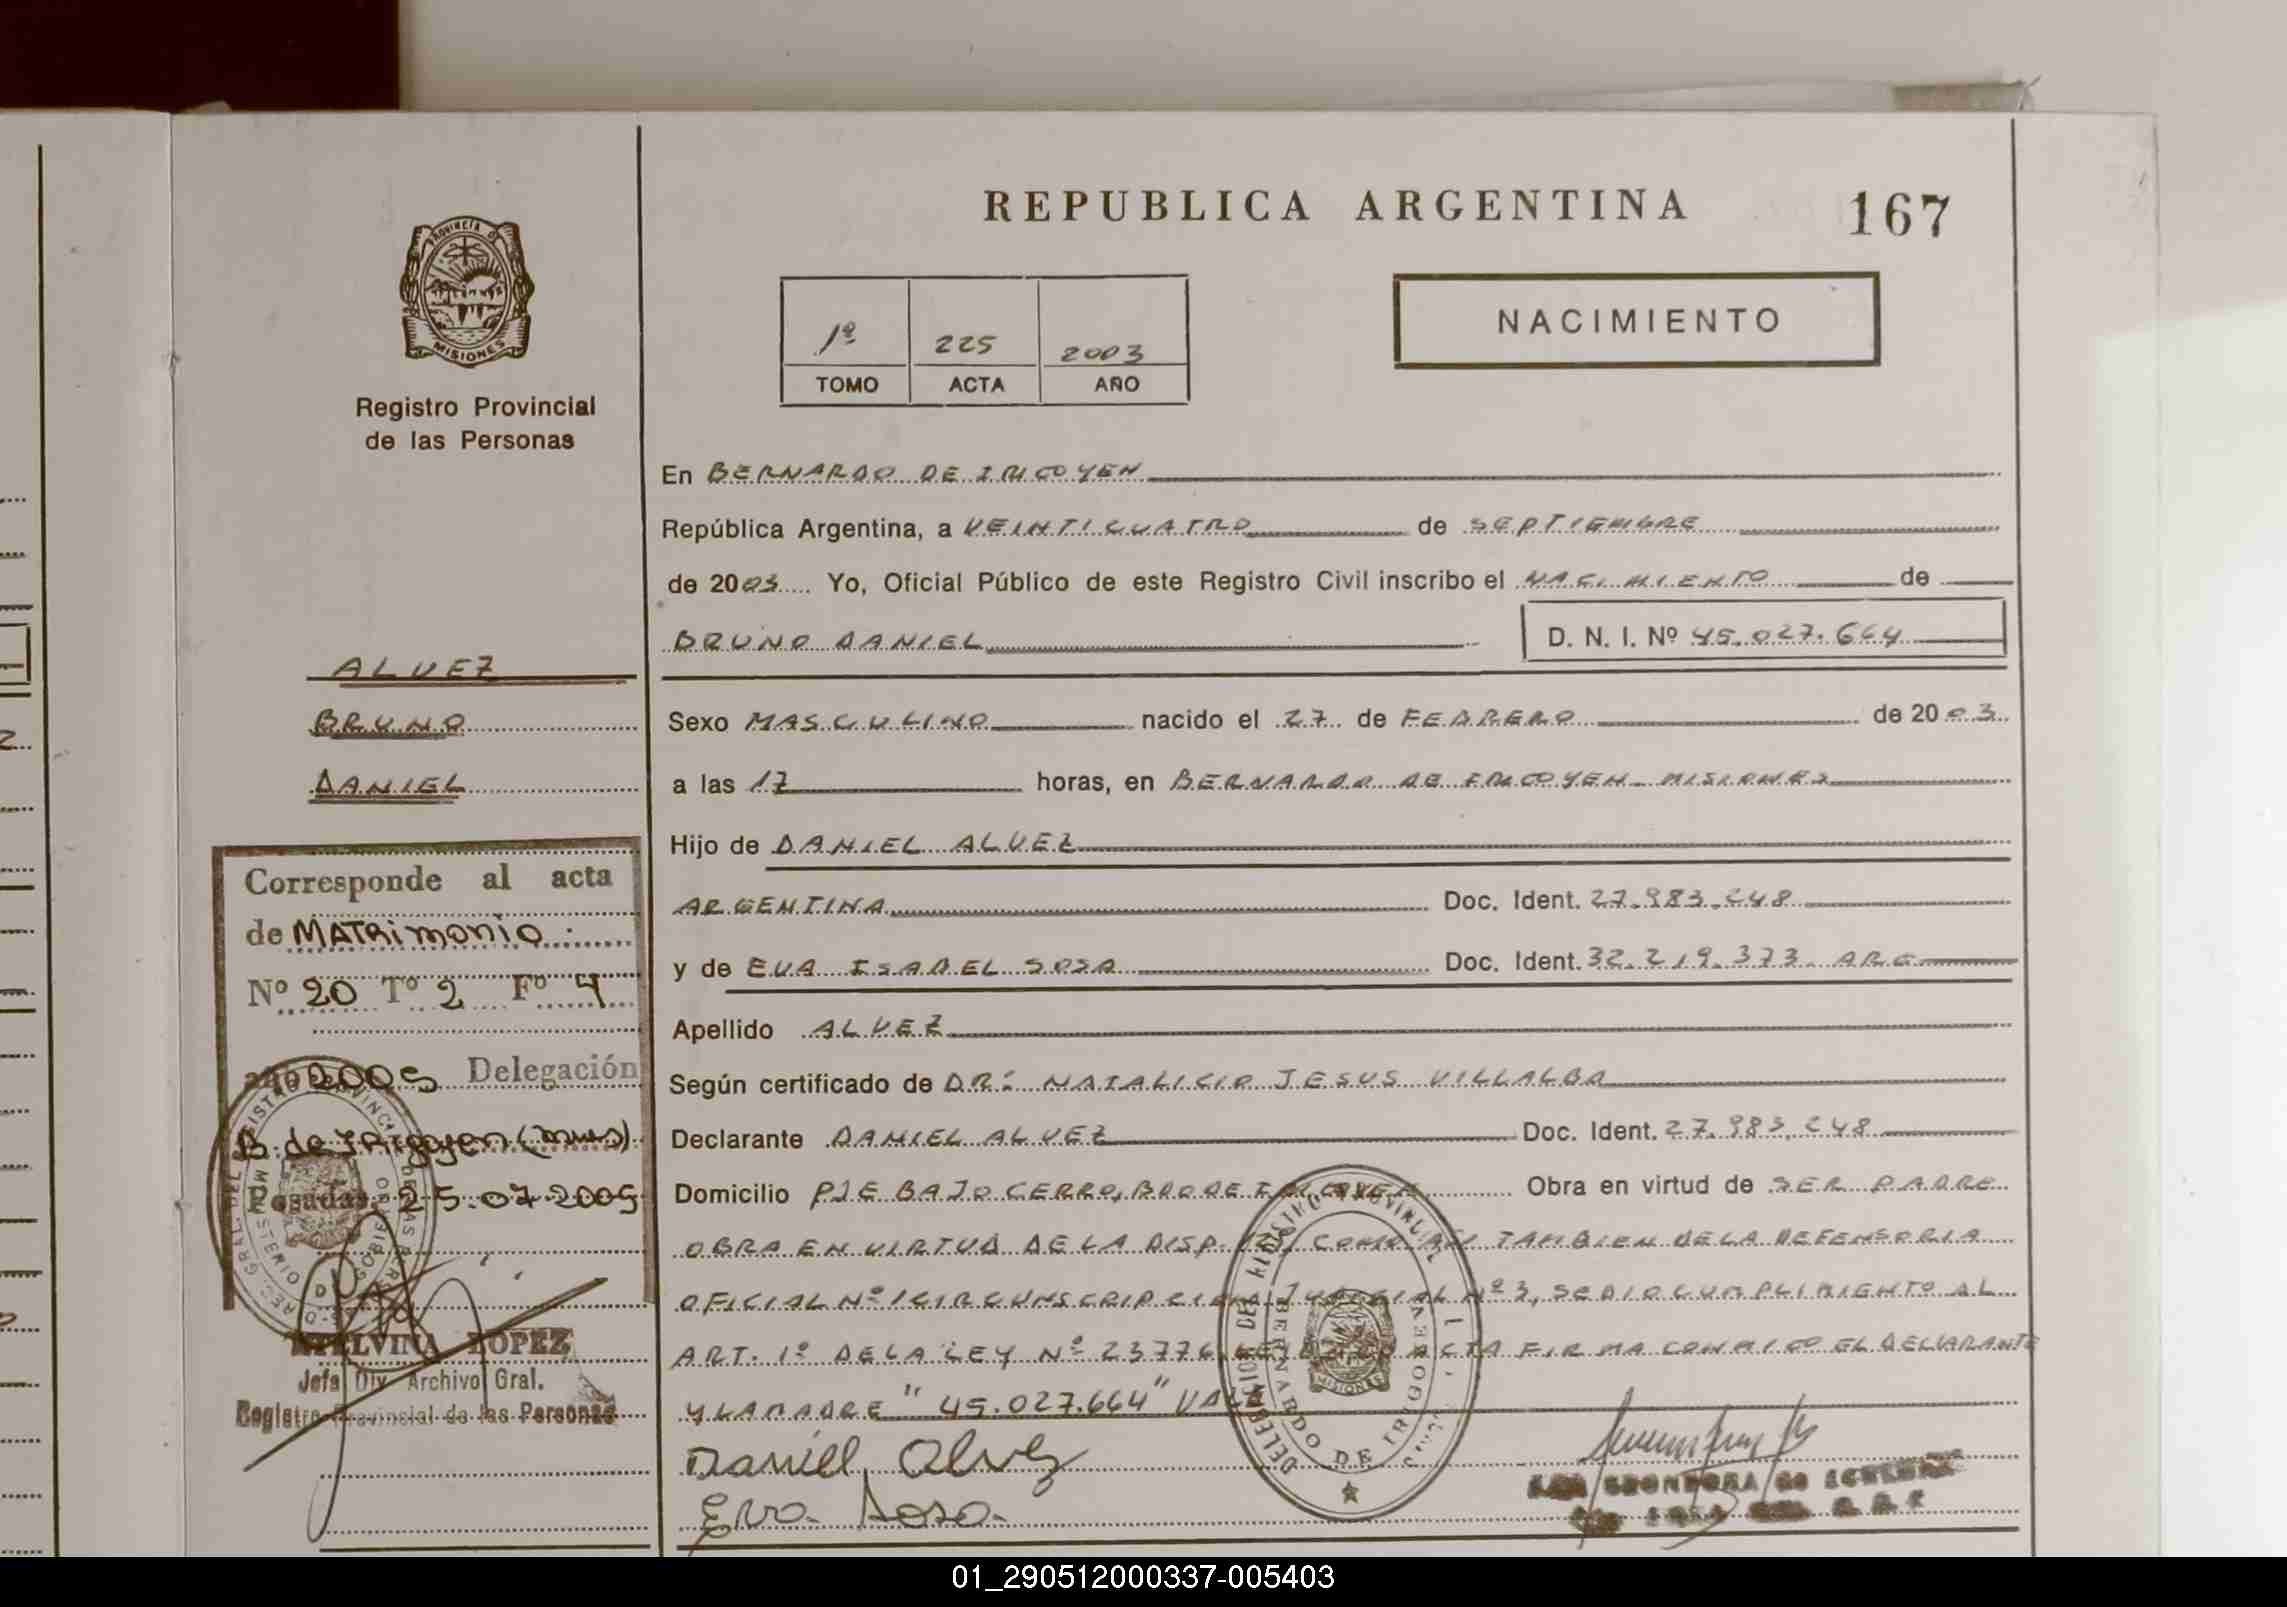 REPUBLICA ARGENTINA
167
PROVINCIA DE
MISIONES
Registro Provincial
de las Personas
1º 225 2003
TOMO ACTA AÑO
NACIMIENTO
En BERNARDO DE IRIGOYEN
República Argentina, a VEINTICUATRO de SEPTIEMBRE
de 2003 Yo, Oficial Público de este Registro Civil inscribo el NACIMIENTO de
BRUNO DANIEL D. N. I. Nº 45.027.664
ALVEZ
BRUNO
DANIEL
Sexo MASCULINO nacido el 27 de FEBRERO de 2003
a las 17 horas, en BERNARDO DE IRIGOYEN MISIONES
Hijo de DANIEL ALVEZ
ARGENTINA Doc. Ident. 27.983.248
y de EVA ISABEL SOSA Doc. Ident. 32.219.373 ARG
Apellido ALVEZ
Según certificado de DR: NATALICIO JESUS VILLALBA
Declarante DANIEL ALVEZ Doc. Ident. 27.983.248
Domicilio PJE BAJO CERRO, BDO DE IRIGOYEN Obra en virtud de SER PADRE
OBRA EN VIRTUD DE LA DISP. COMO ASI TAMBIEN DE LA DEFENSORIA
OFICIAL Nº 1 CIRCUNSCRIPCION JUDICIAL Nº 3, SE DIO CUMPLIMIENTO AL
ART. 1º DE LA LEY Nº 23776 LEIDA ACTA FIRMA CONMIGO EL DECLARANTE
Y LA MADRE "45.027.664" VALE
Daniel Alvez
Eva Sosa
Corresponde al acta
de MATRIMONIO
Nº 20 Tº 2 Fº 4
año 2005 Delegación
B. de Irigoyen (Mnes)
Posadas, 25-07-2005
LOPEZ
Jefa Div. Archivo Gral.
Registro Provincial de las Personas
DELEGACION DEL REGISTRO PROVINCIAL
BERNARDO DE IRIGOYEN
MISIONES
01_290512000337-005403